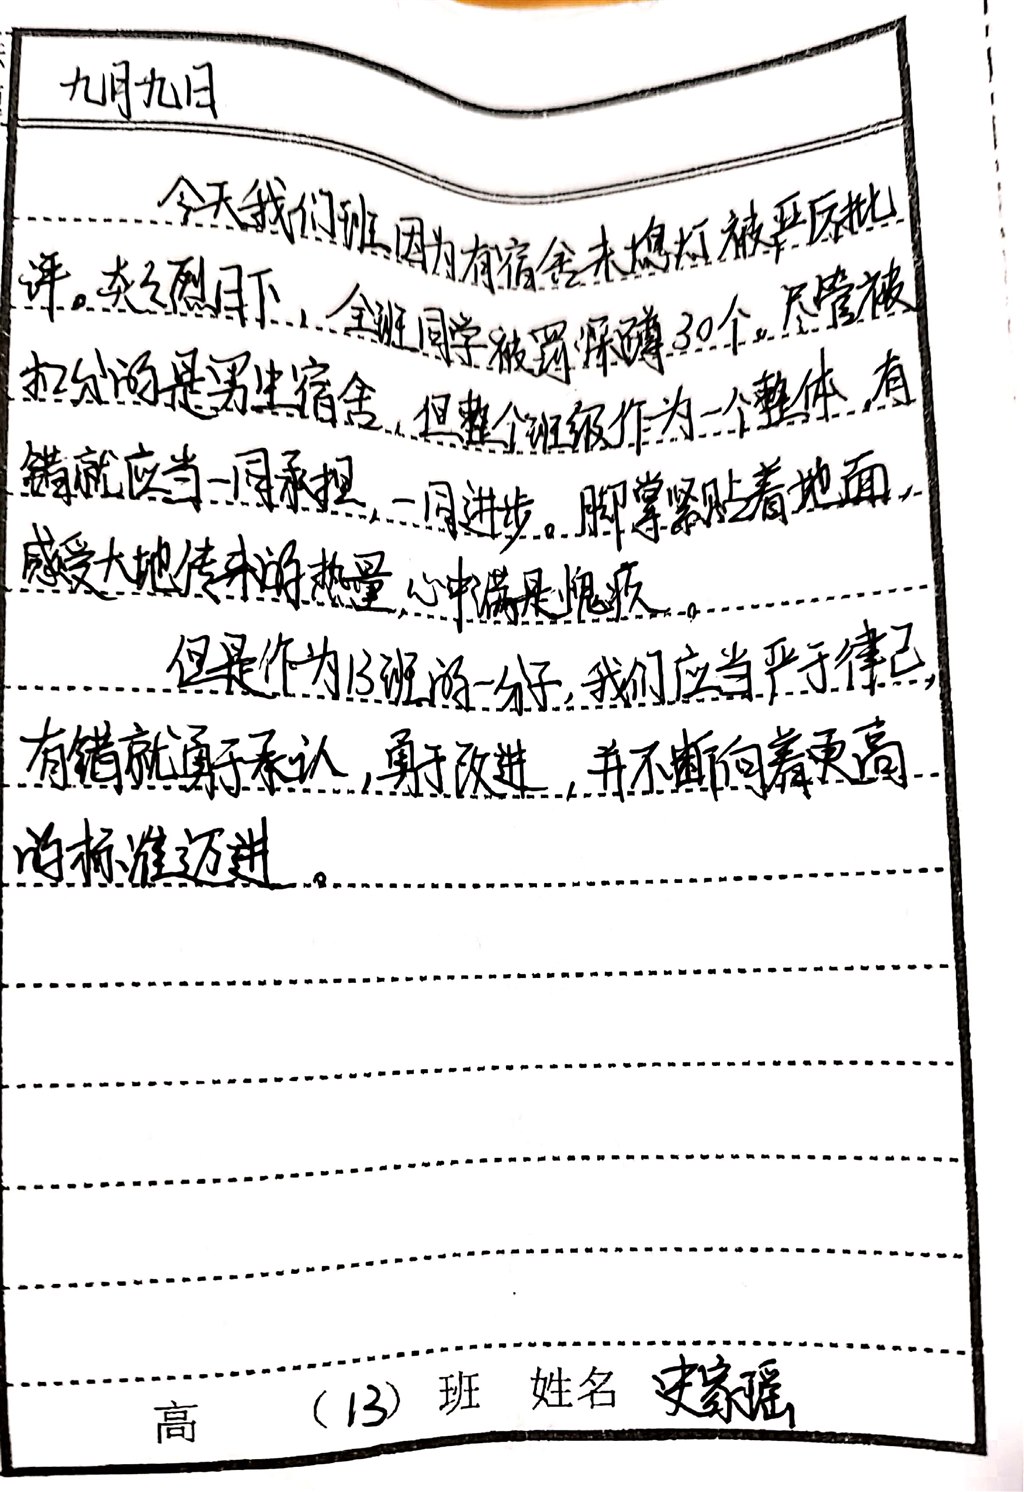 九月九日
今天我们班因为有宿舍未熄灯被严厉批
评。炎炎烈日下，全班同学被罚深蹲30个。尽管被
扣分的是男生宿舍，但整个班级作为一个整体，有
错就应当一同承担，一同进步。脚掌紧贴着地面，
感受大地传来的热量，心中满是愧疚。
但是作为13班的一分子，我们应当严于律己，
有错就勇于承认，勇于改进，并不断向着更高
的标准迈进。
高 （13）班 姓名 史家瑶